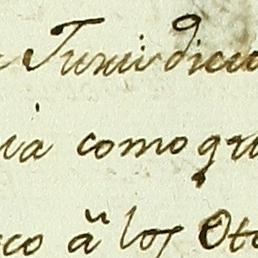 Jurisdicci
cia como qu
co â los Oto